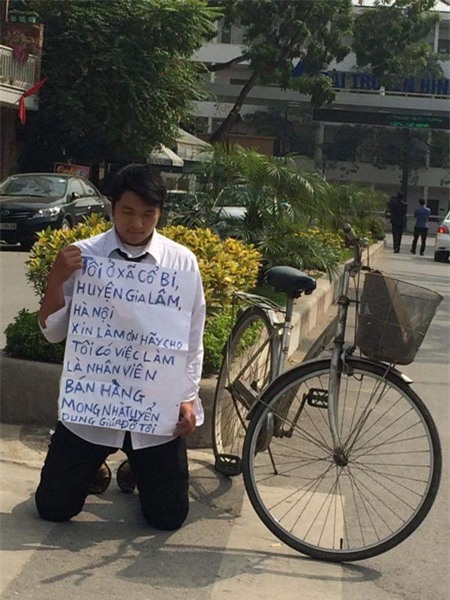 TÔI Ở XÃ CỔ BI,
HUYỆN GIA LÂM,
HÀ NỘI
XIN LÀM ƠN HÃY CHO
TÔI CÓ VIỆC LÀM
LÀ NHÂN VIÊN
BÁN HÀNG
MONG NHÀ TUYỂN
DỤNG GIÚP ĐỠ TÔI
ĐÀI TRUYỀN HÌN